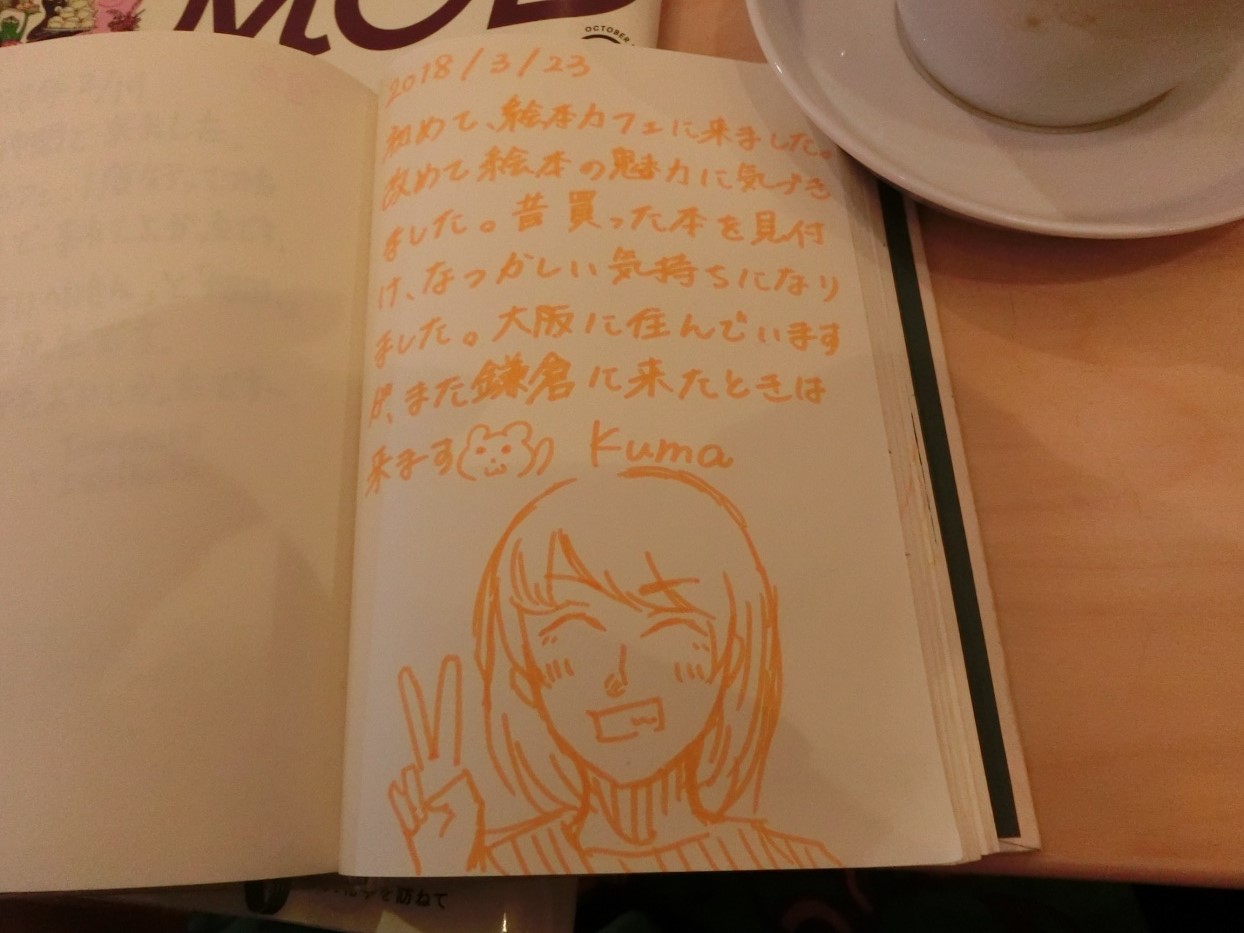 MOE
OCTOBER
2018/3/23
初めて、絵本カフェに来ました。
改めて絵本の魅力に気づき
ました。昔買った本を見付
け、なつかしい気持ちになり
ました。大阪に住んでいます
が、また鎌倉に来たときは
来ます Kuma
を訪ねて